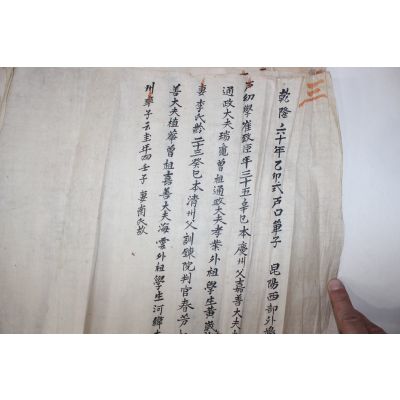 三
乾隆六十年乙卯式戶口單子 昆陽西部外
戶幼學崔致臣年三十五辛巳本慶州父嘉善大夫
通政大夫瑞龜曾祖通政大夫孝業外祖學生黃
妻李氏齡二十三癸巳本清州父訓鍊院判官春芳
善大夫植華曾祖嘉善大夫海雲外祖學生河
州率子年壬子 妻氏故